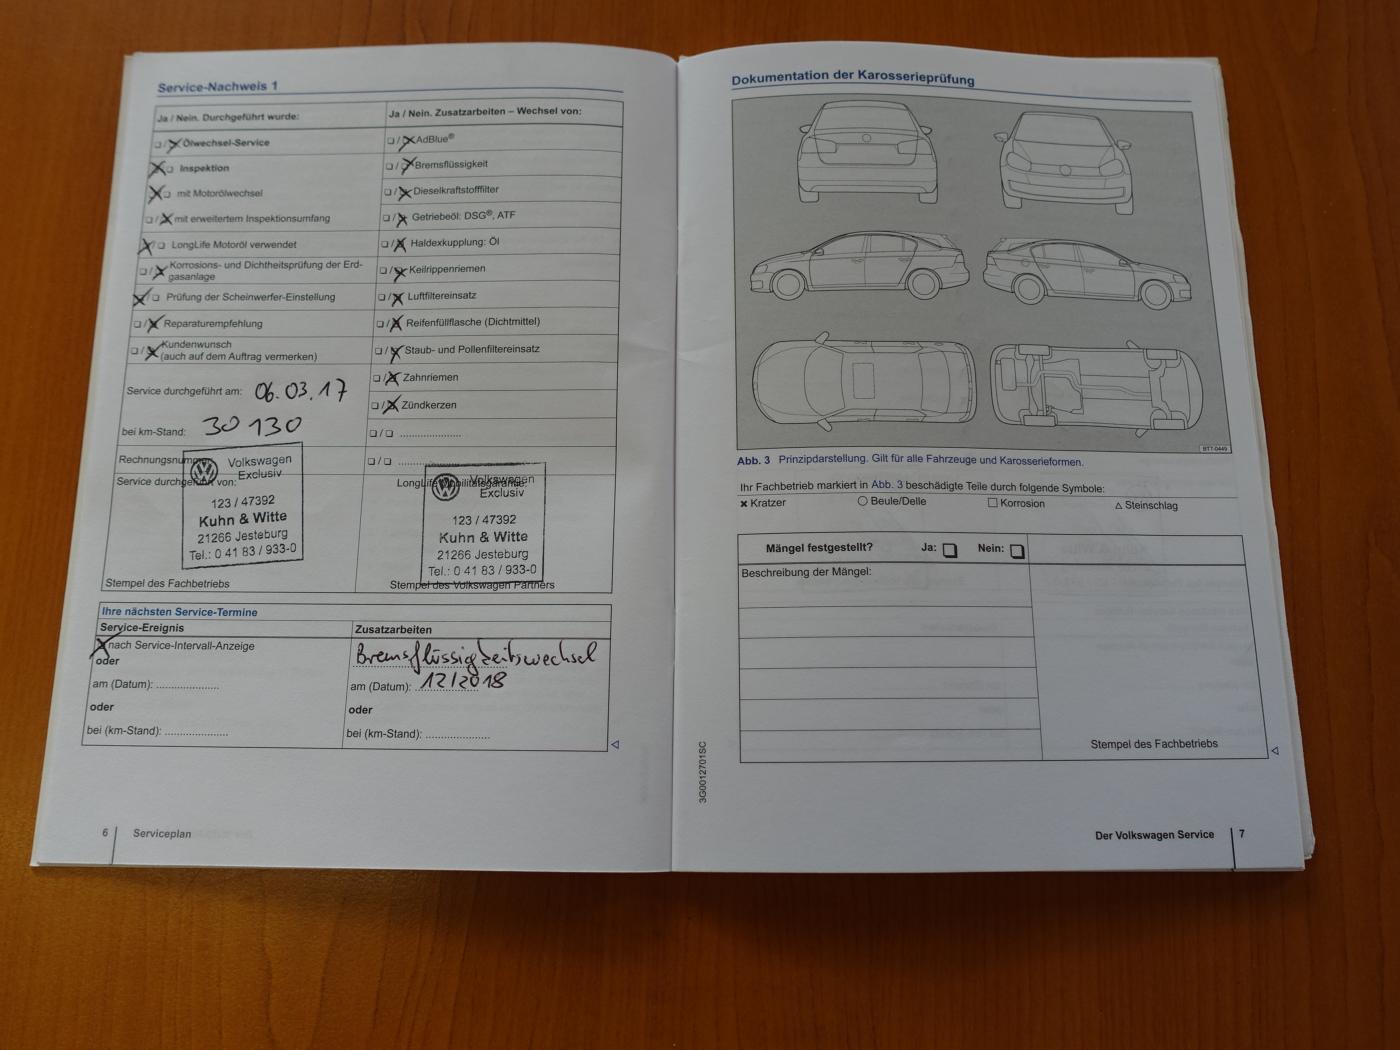 Service-Nachweis 1
Ja / Nein. Durchgeführt wurde:
❑ / ❑ Ölwechsel-Service
❑ / ❑ Inspektion
❑ / ❑ mit Motorölwechsel
❑ / ❑ mit erweitertem Inspektionsumfang
❑ / ❑ LongLife Motoröl verwendet
❑ / ❑ Korrosions- und Dichtheitsprüfung der Erd-
gasanlage
❑ / ❑ Prüfung der Scheinwerfer-Einstellung
❑ / ❑ Reparaturempfehlung
❑ / ❑ Kundenwunsch
(auch auf dem Auftrag vermerken)
Service durchgeführt am: 06.03.17
bei km-Stand: 30 130
Rechnungsnummer
Service durchgeführt von:
Volkswagen
Exclusiv
123 / 47392
Kuhn & Witte
21266 Jesteburg
Tel.: 0 41 83 / 933-0
Stempel des Fachbetriebs
Ja / Nein. Zusatzarbeiten – Wechsel von:
❑ / ❑ AdBlue®
❑ / ❑ Bremsflüssigkeit
❑ / ❑ Dieselkraftstofffilter
❑ / ❑ Getriebeöl: DSG®, ATF
❑ / ❑ Haldexkupplung: Öl
❑ / ❑ Keilrippenriemen
❑ / ❑ Luftfiltereinsatz
❑ / ❑ Reifenfüllflasche (Dichtmittel)
❑ / ❑ Staub- und Pollenfiltereinsatz
❑ / ❑ Zahnriemen
❑ / ❑ Zündkerzen
❑ / ❑ .....................
❑ / ❑ .....................
LongLife Mobilitätsgarantie:
Volkswagen
Exclusiv
123 / 47392
Kuhn & Witte
21266 Jesteburg
Tel.: 0 41 83 / 933-0
Stempel des Volkswagen Partners
Ihre nächsten Service-Termine
Service-Ereignis
nach Service-Intervall-Anzeige
oder
am (Datum): .....................
oder
bei (km-Stand): .....................
Zusatzarbeiten
Bremsflüssigkeitswechsel
am (Datum): 12/2018
oder
bei (km-Stand): .....................
6 Serviceplan
Dokumentation der Karosserieprüfung
BTT-0449
Abb. 3 Prinzipdarstellung. Gilt für alle Fahrzeuge und Karosserieformen.
Ihr Fachbetrieb markiert in Abb. 3 beschädigte Teile durch folgende Symbole:
✖ Kratzer ○ Beule/Delle □ Korrosion △ Steinschlag
Mängel festgestellt? Ja: ❑ Nein: ❑
Beschreibung der Mängel:
Stempel des Fachbetriebs
3G0012701SC
Der Volkswagen Service 7